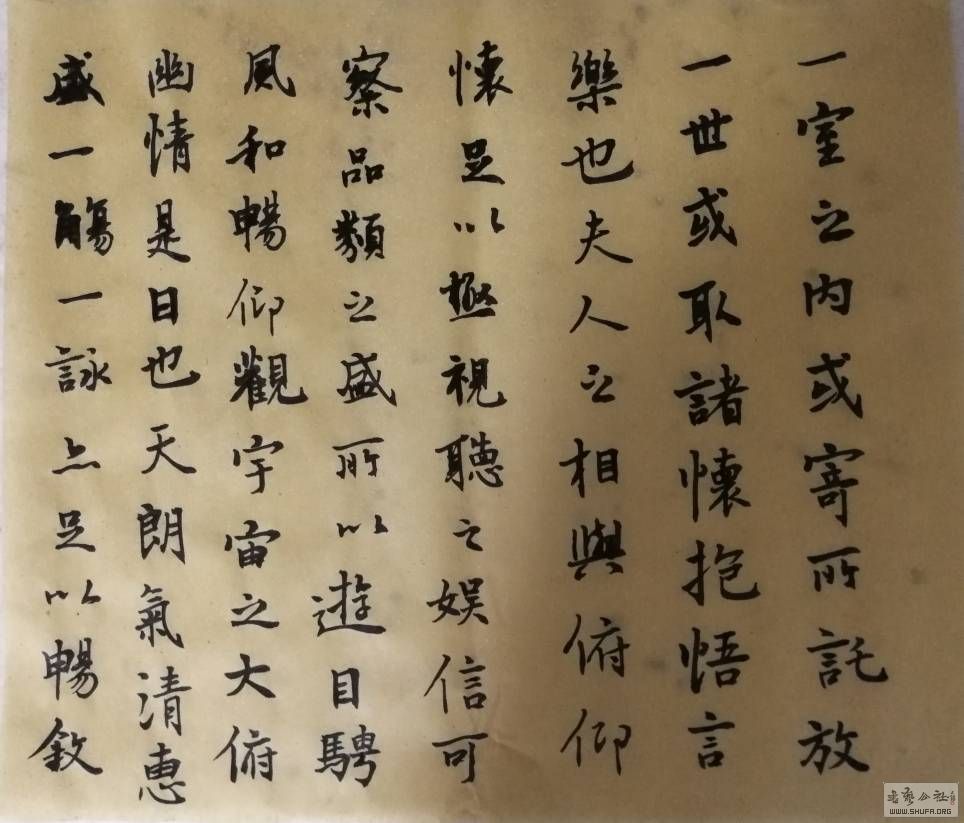 盛一觴一詠亦足以暢敘
幽情是日也天朗氣清惠
風和暢仰觀宇宙之大俯
察品類之盛所以遊目騁
懷足以極視聽之娛信可
樂也夫人之相與俯仰
一世或取諸懷抱悟言
一室之内或寄所託放
書藝公社
WWW.SHUFA.ORG